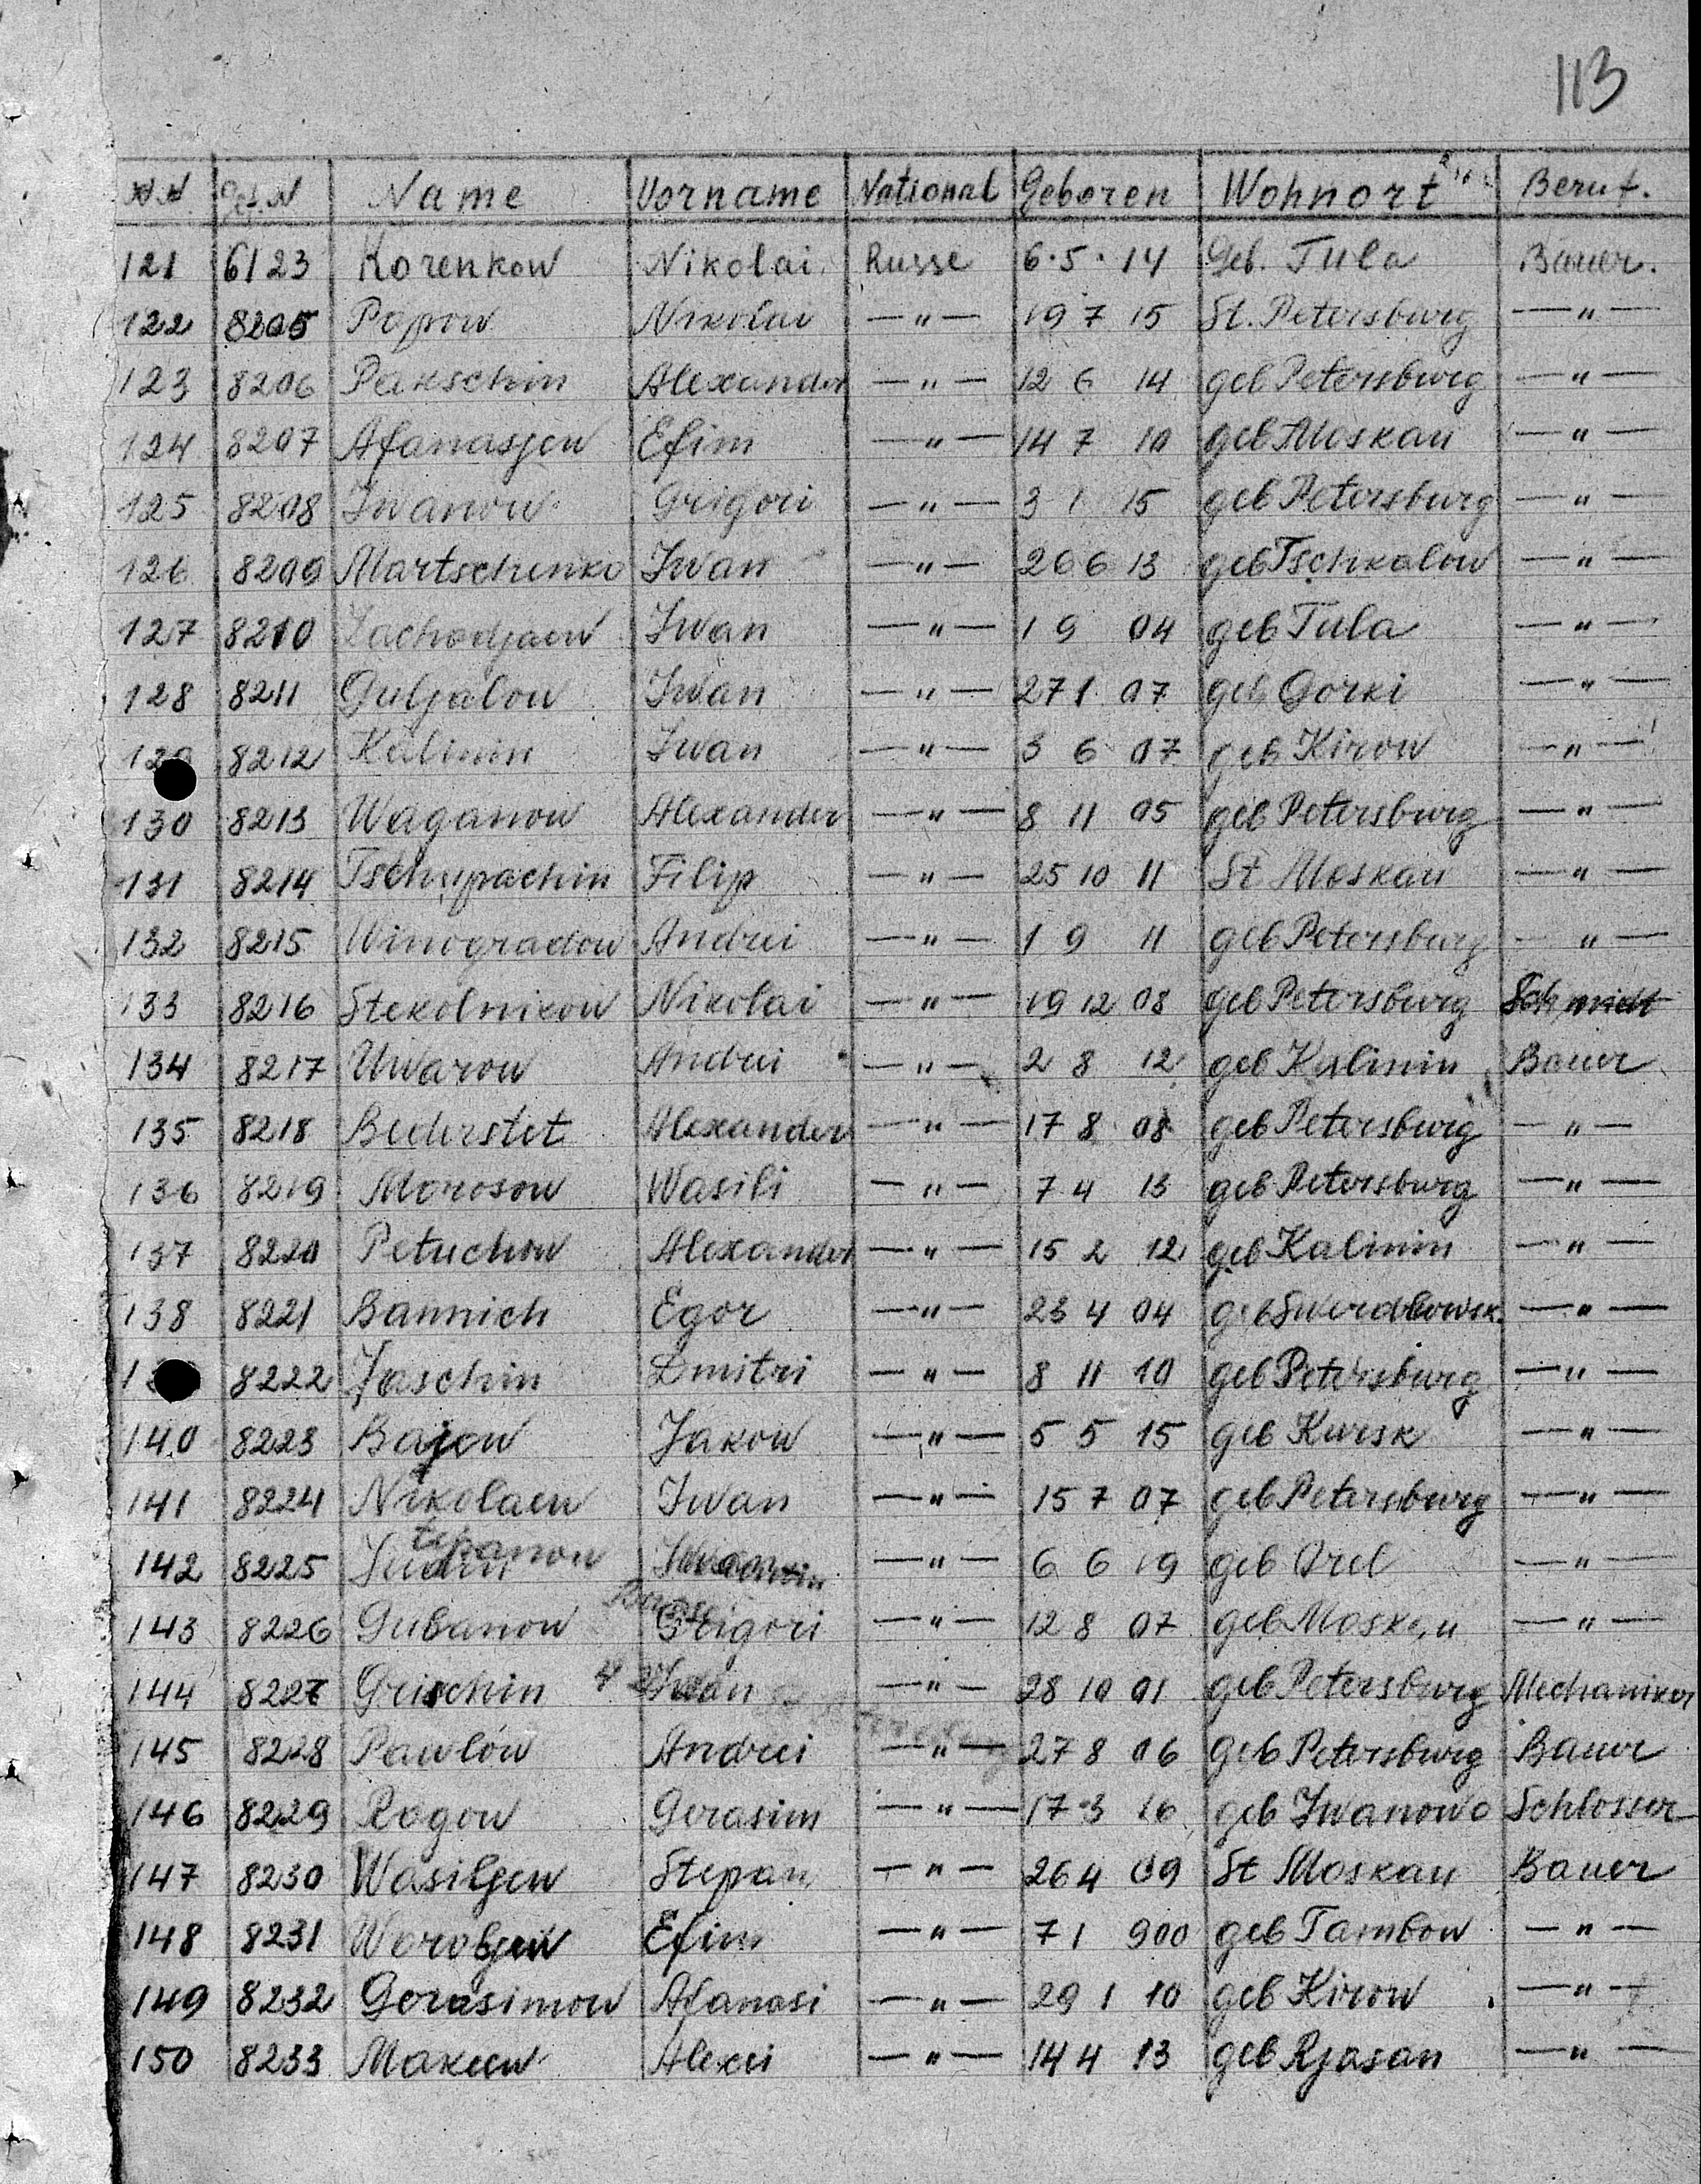 113
NN Gef.N Name Vorname National Geboren Wohnort Beruf.
121 6123 Korenkow Nikolai Russe 6.5.14 Geb. Tula Bauer.
122 8205 Popow Nikolai —"— 19 7 15 St. Petersburg —"—
123 8206 Pakschin Alexander —"— 12 6 14 geb Petersburg —"—
124 8207 Afanasjew Efim —"— 14 7 10 geb Moskau —"—
125 8208 Iwanow Grigori —"— 3 1 15 geb Petersburg —"—
126 8209 Martschenko Iwan —"— 20 6 13 geb Tschkalow —"—
127 8210 Zachodjaew Iwan —"— 1 9 04 geb Tula —"—
128 8211 Guljalow Iwan —"— 27 1 07 geb Gorki —"—
129 8212 Kalinin Iwan —"— 3 6 07 geb Kirow —"—
130 8213 Waganow Alexander —"— 8 11 05 geb Petersburg —"—
131 8214 Tschupachin Filip —"— 25 10 11 St Moskau —"—
132 8215 Winogradow Andrei —"— 1 9 11 geb Petersburg —"—
133 8216 Stekolnikow Nikolai —"— 19 12 08 geb Petersburg Schmidt
134 8217 Uwarow Andrei —"— 2 8 12 geb Kalinin Bauer
135 8218 Bederstet Alexander —"— 17 8 08 geb Petersburg —"—
136 8219 Morosow Wasili —"— 7 4 13 geb Petersburg —"—
137 8220 Petuchow Alexander —"— 15 2 12 geb Kalinin —"—
138 8221 Bannich Egor —"— 23 4 04 geb Swerdlowsk. —"—
1 8222 Jaschin Dmitri —"— 8 11 10 geb Petersburg —"—
140 8223 Bajew Jakow —"— 5 5 15 geb Kursk —"—
141 8224 Nikolaew Iwan —"— 15 7 07 geb Petersburg —"—
142 8225 Judin —"— 6 6 19 geb Orel —"—
143 8226 Gubanow Grigori —"— 12 8 07 geb Moskau —"—
144 8227 Grischin Iwan —"— 28 10 01 geb Petersburg Mechaniker
145 8228 Pawlow Andrei —"— 27 8 06 geb Petersburg Bauer
146 8229 Rogow Gerasim —"— 17 3 16 geb Iwanowo Schlosser
147 8230 Wasiljew Stepan —"— 26 4 09 St Moskau Bauer
148 8231 Worobjew Efim —"— 7 1 900 geb Tambow —"—
149 8232 Gerasimow Afanasi —"— 29 1 10 geb Kirow —"—
150 8233 Makeew Alexei —"— 14 4 13 geb Rjasan —"—